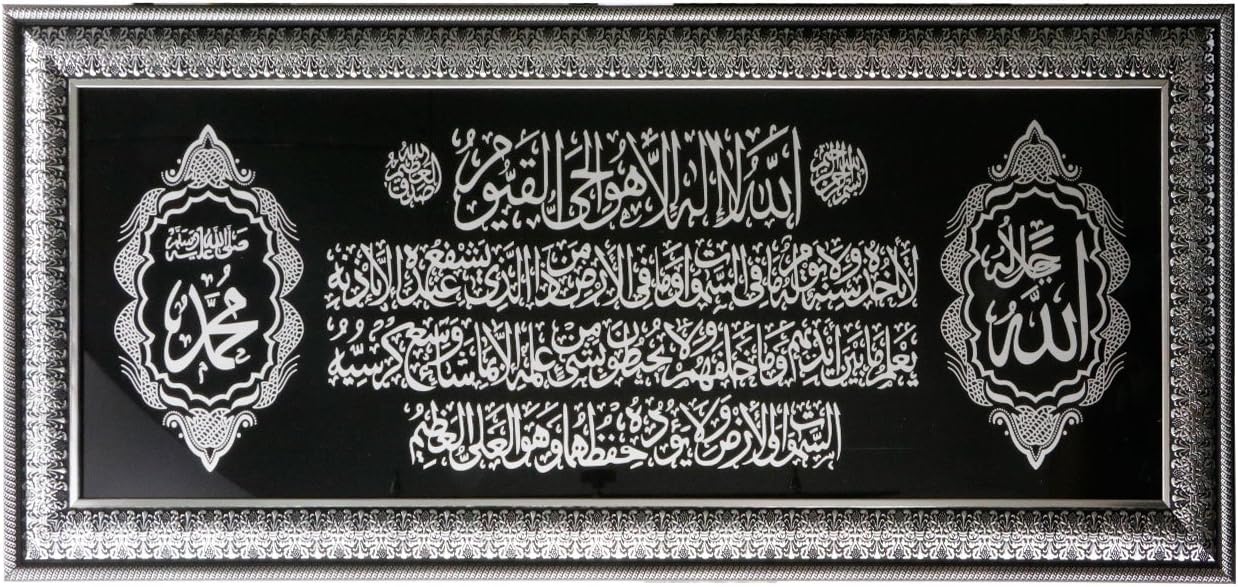 بسم الله الرحمن الرحيم
الله لا إله إلا هو الحي القيوم
صدق الله العظيم
لا تأخذه سنة ولا نوم له ما في السموات وما في الأرض من ذا الذي يشفع عنده إلا بإذنه
يعلم ما بين أيديهم وما خلفهم ولا يحيطون بشيء من علمه إلا بما شاء وسع كرسيه
السموات والأرض ولا يؤده حفظهما وهو العلي العظيم
الله
جل جلاله
محمد
صلى الله عليه وسلم